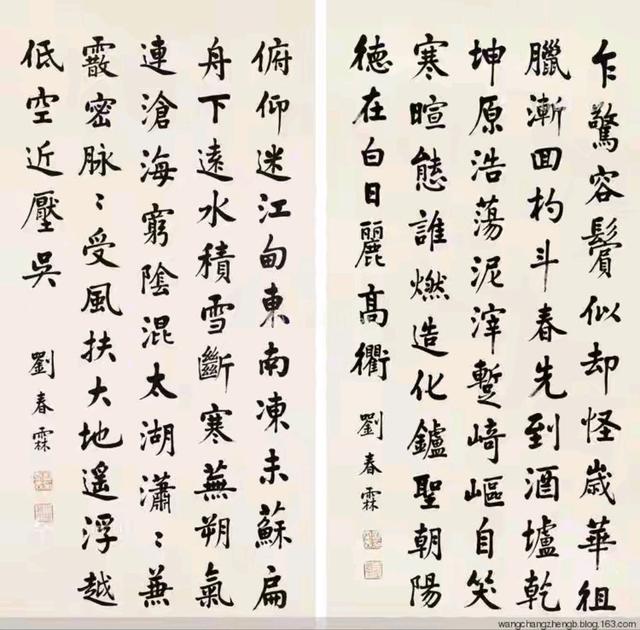 乍驚容鬢似却怪歲華徂
臘漸回杓斗春先到酒壚乾
坤原浩蕩泥滓蹔崎嶇自笑
寒暄態誰燃造化鑪聖朝陽
德在白日麗高衢
劉春霖
俯仰迷江甸東南凍未蘇扁
舟下遠水積雪斷寒蕪朔氣
連滄海窮陰混太湖瀟〻兼
霰密脉〻受風扶大地遙浮越
低空近壓吳
劉春霖
wangchangzhengb.blog.163.com